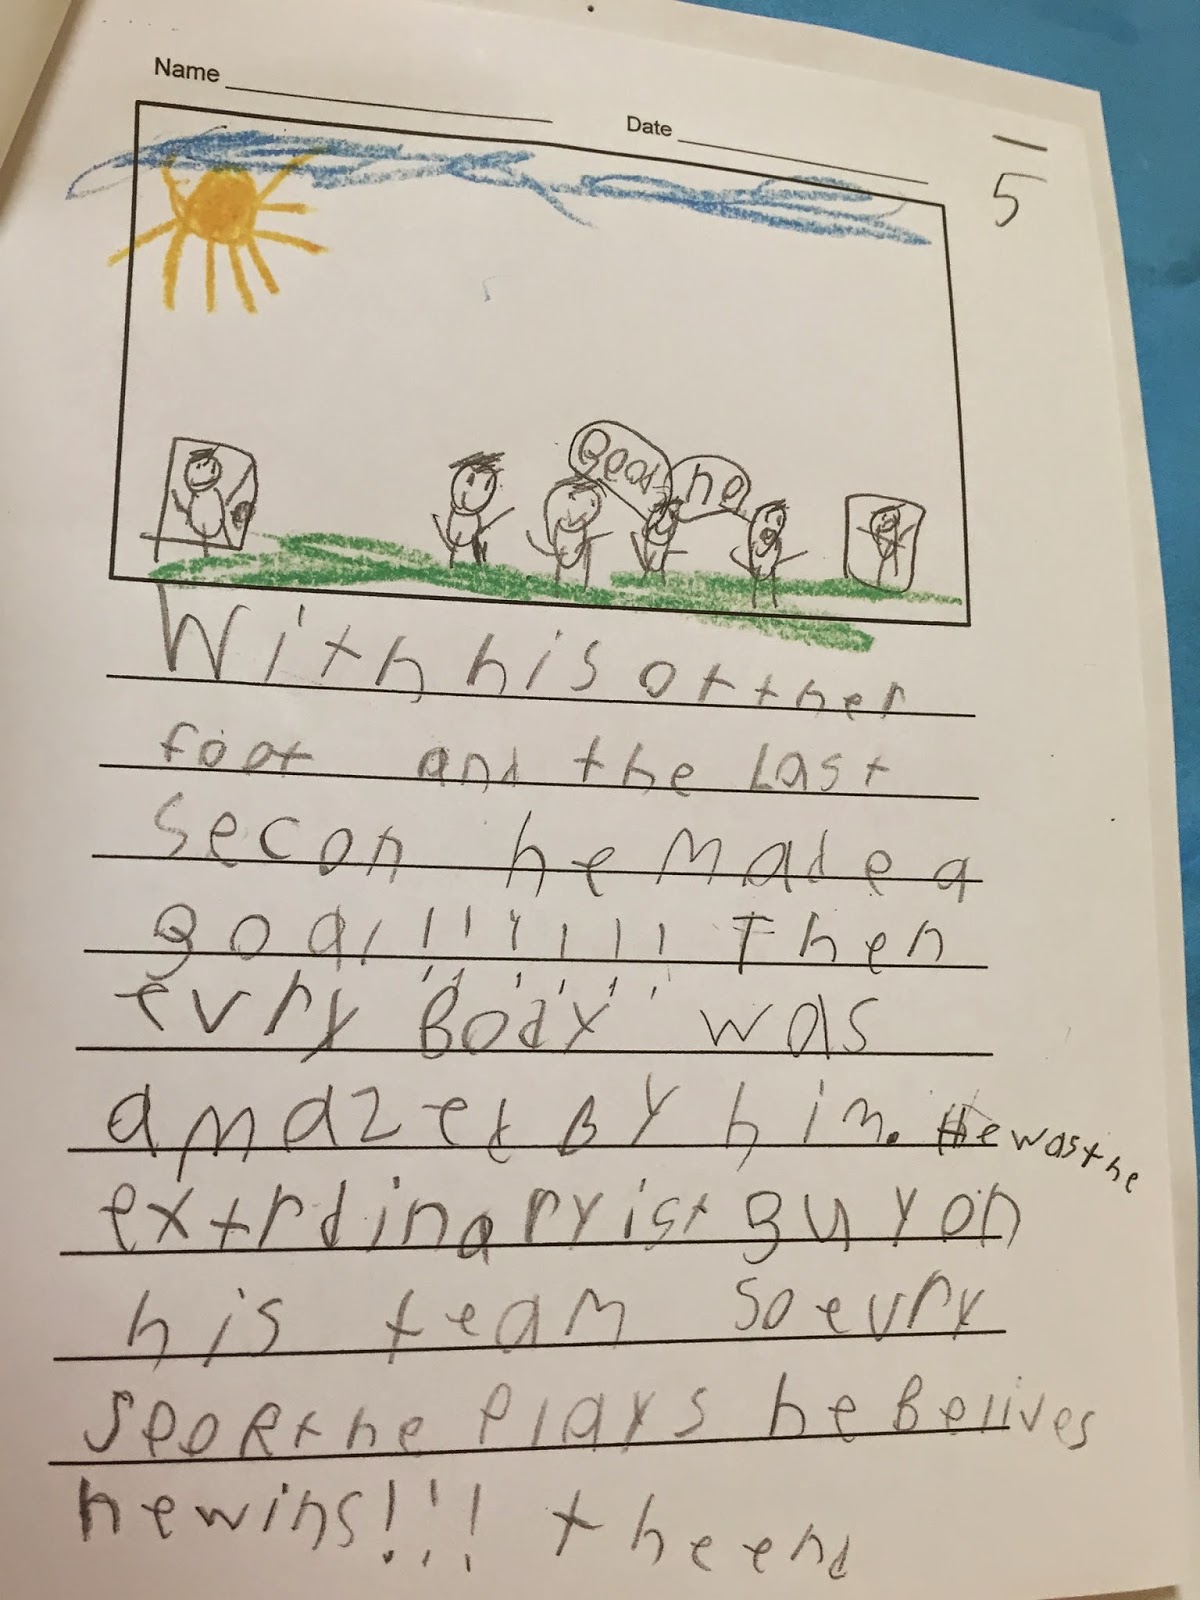 Name
Date
5
Goal
no
With his otther
foot and the last
secon he made a
goal!!!!!! Then
evry Body was
amazet By him. He was the
extrdinaryist guy on
his team so evry
sport he plays he Belives
he wins!!! the end